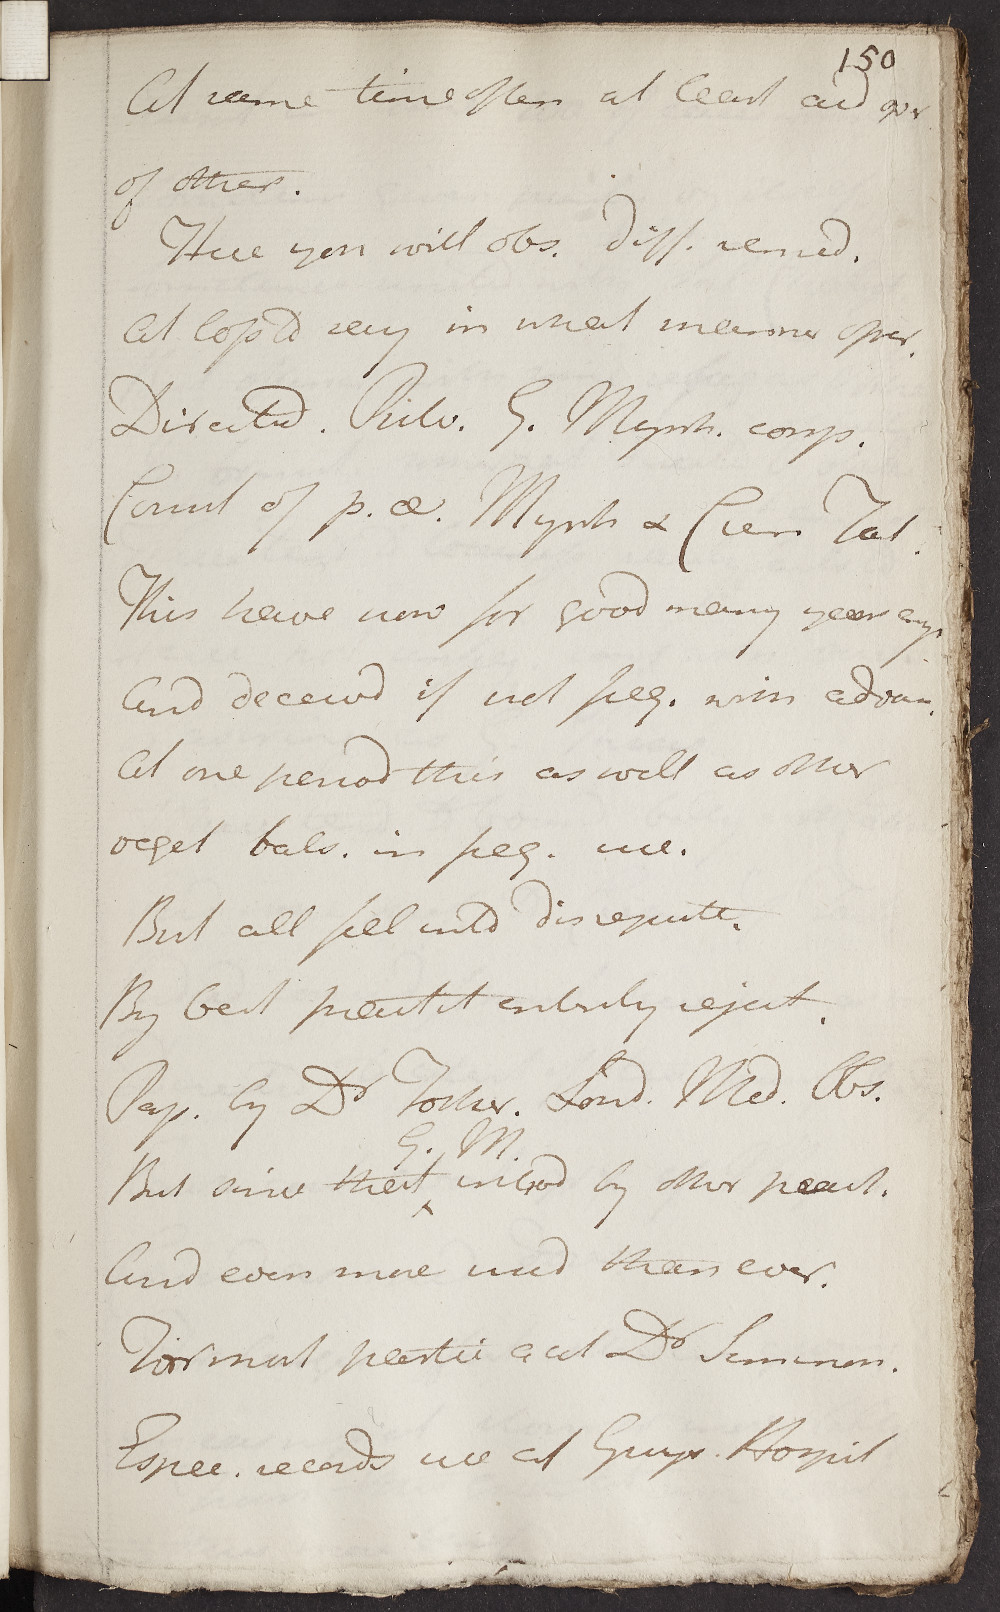 150
At same time often at least aid oper
of other.
Here you will obs. diff. remed.
At loss to say in what manner oper.
Directed. Pulv. G. Myrrh. comp.
Const of p. æ. Myrrh & Crem Tat.
This have now for good many years emp
And deceived if not freq. with advan.
At one period this as well as other
veget bals. in freq. use.
But all fell into disrepute.
By best practit entirely reject.
Pap. by Dr Fother. Lond. Med. Obs.
G. M.
But since that introd by other pract.
And even more used than ever.
For most partic acct Dr Simmon.
Espec. records use at Guys. Hospit